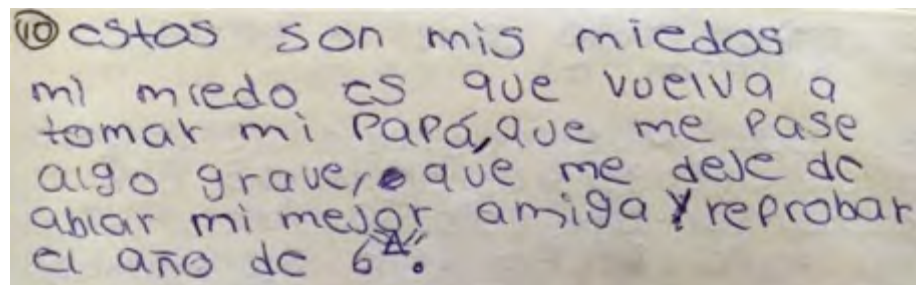 ⑩ estos son mis miedos
mi miedo es que vuelva a
tomar mi Papá, que me Pase
algo grave, o que me deje de
ablar mi mejor amiga y reprobar
el año de 6"A".